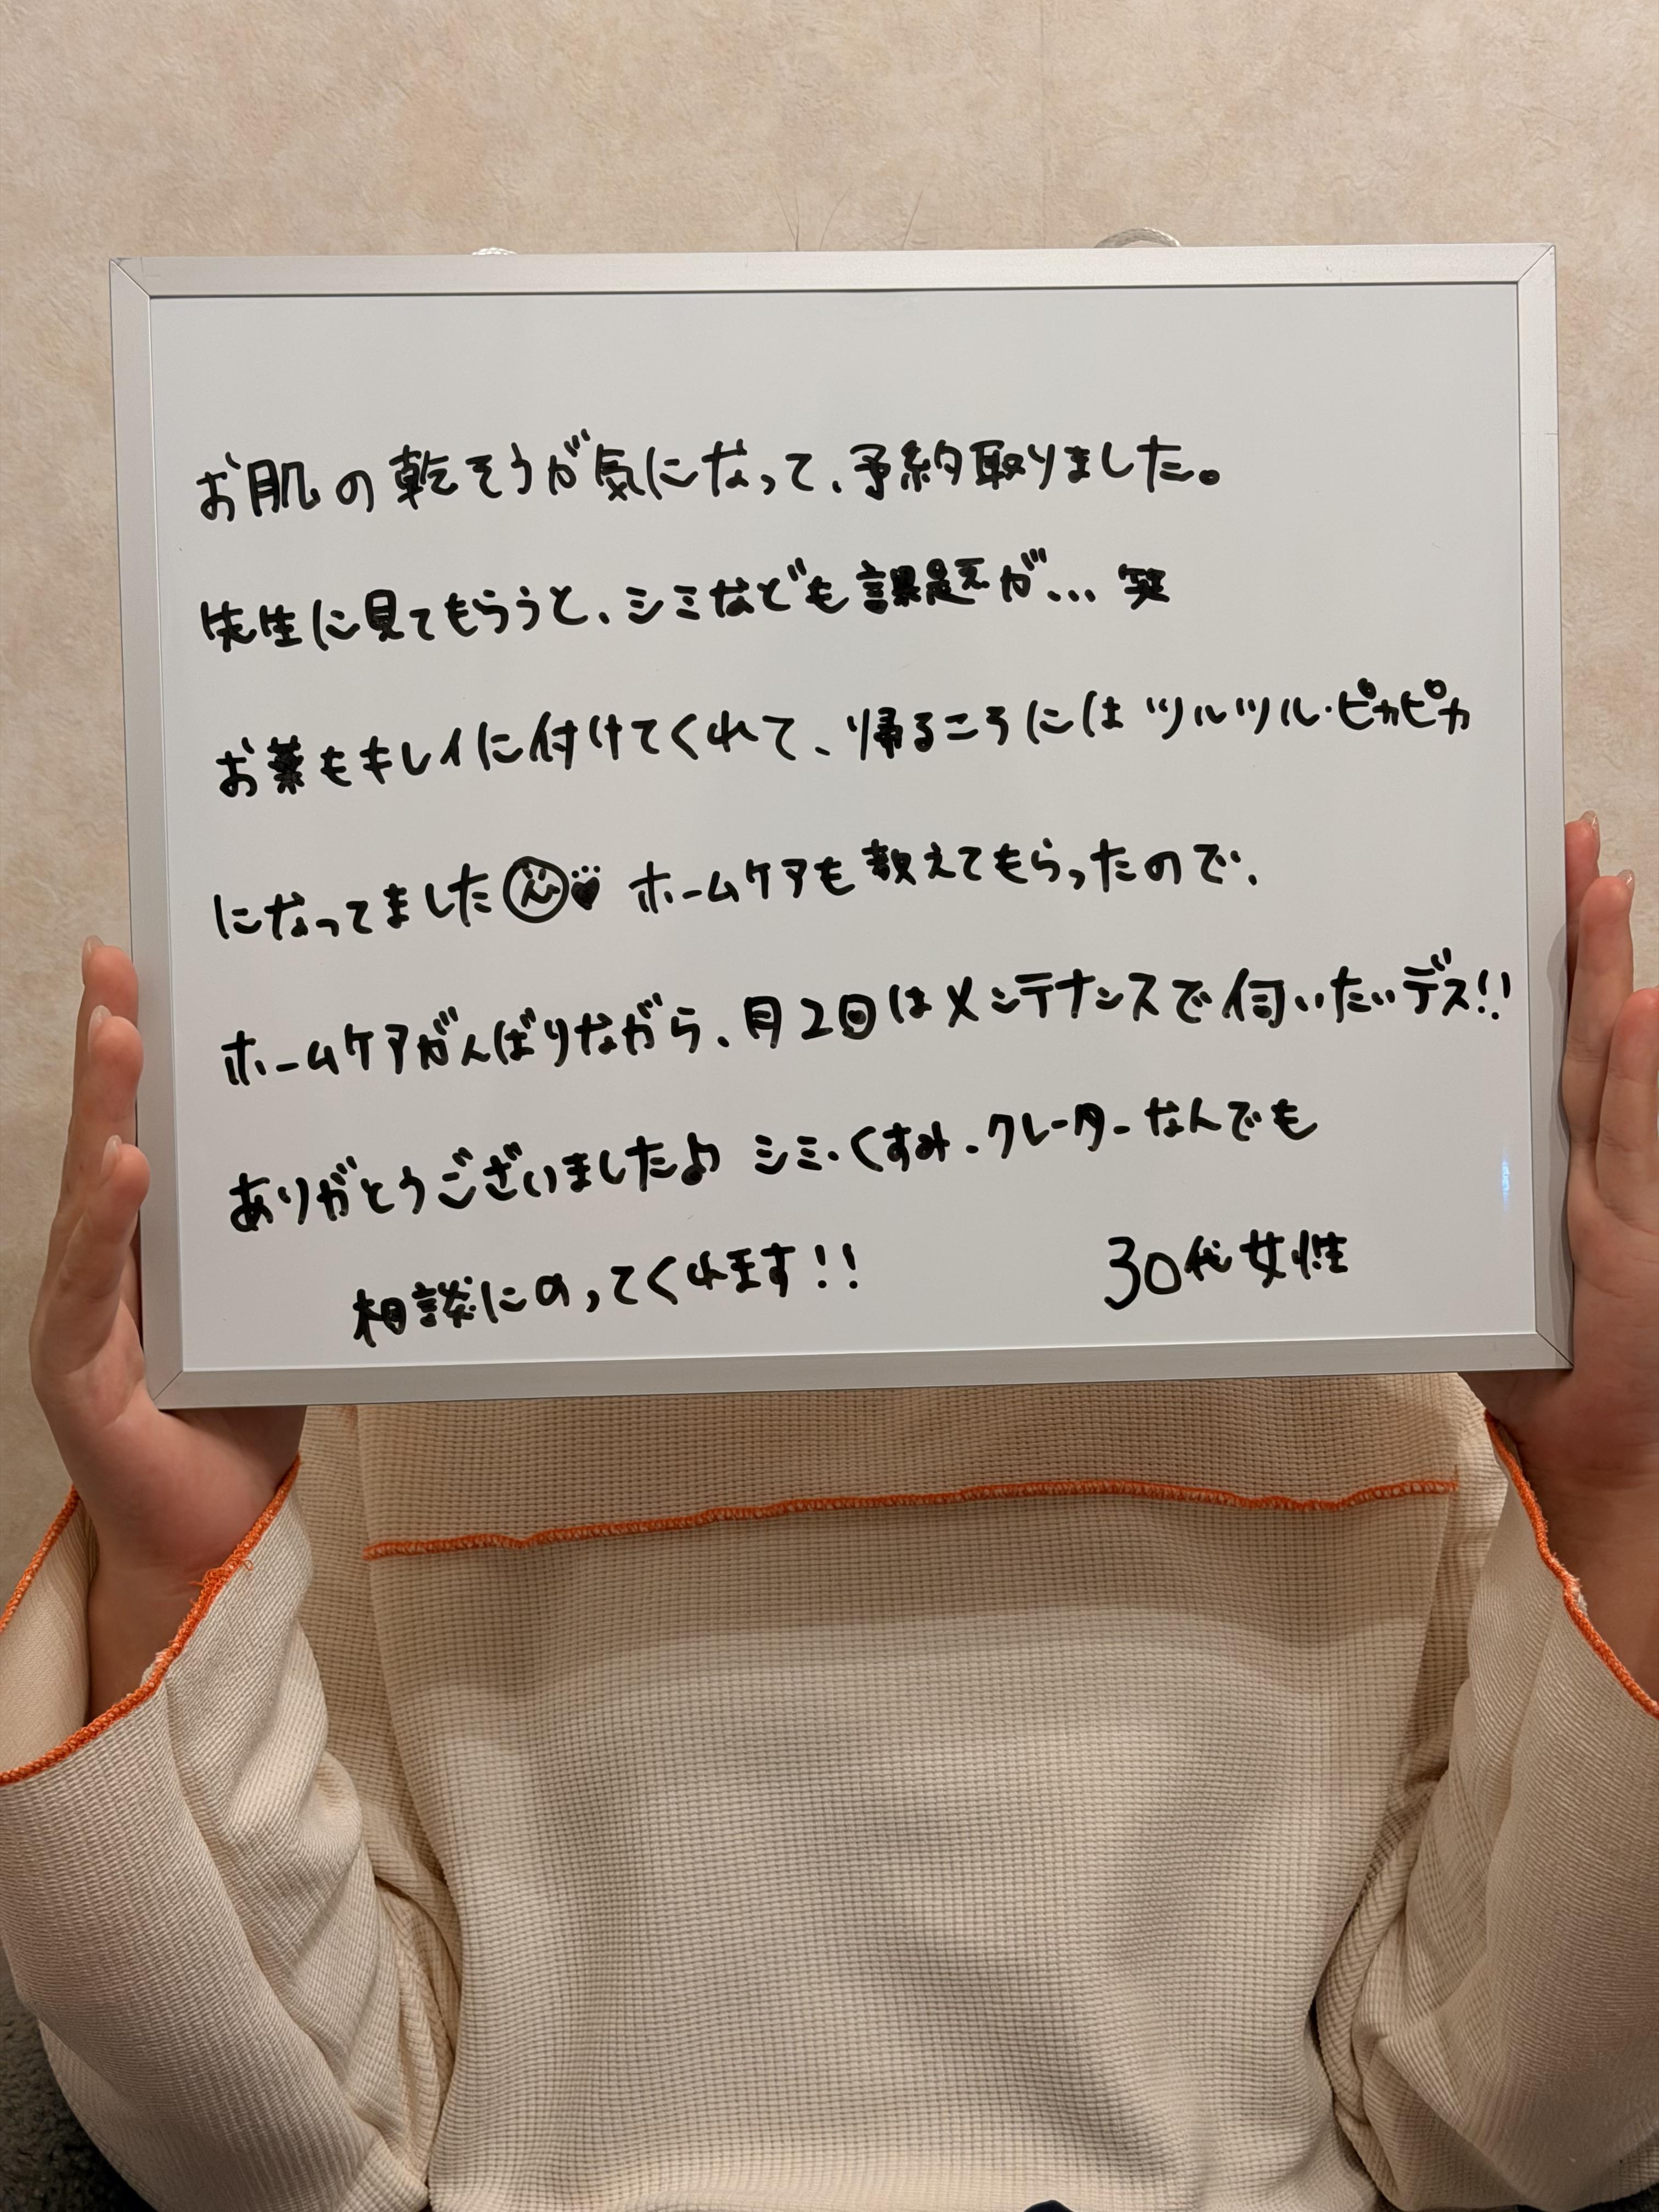 お肌の乾そうが気になって、予約取りました。
先生に見てもらうと、シミなども課題が…笑
お薬もキレイに付けてくれて、帰るころにはツルツル・ピカピカ
になってました ホームケアも教えてもらったので、
ホームケアがんばりながら、月2回はメンテナンスで伺いたいデス!!
ありがとうございました♪ シミ・くすみ・クレーターなんでも
相談にのってくれます!! 30代女性